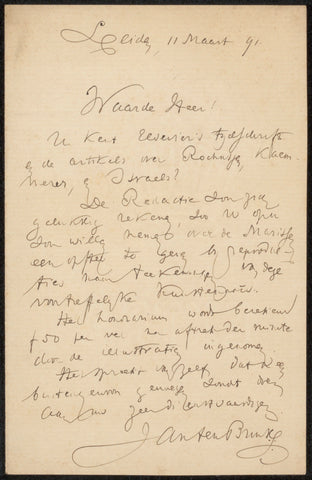 Leiden, 11 Maart 91
Waarde Heer!
U kent Elsevier's tijdschrift
en de artikels over Rochussen, Kaem-
merer, en Israels?
De Redactie zou zich
gelukkig rekenen, zoo U
zou willen over de Marissen
een opstel te bij reproduc-
ties naar teekeningen van deze
voortreffelijke kunstenaars.
Het honorarium wordt berekend
f50 per vel na aftrek der ruimte
door de illustratien ingenomen.
Het spreekt van zelf, dat U mij
buitengewoon zoudt
aan uw zeer dienstvaardigen
Jan ten Brink